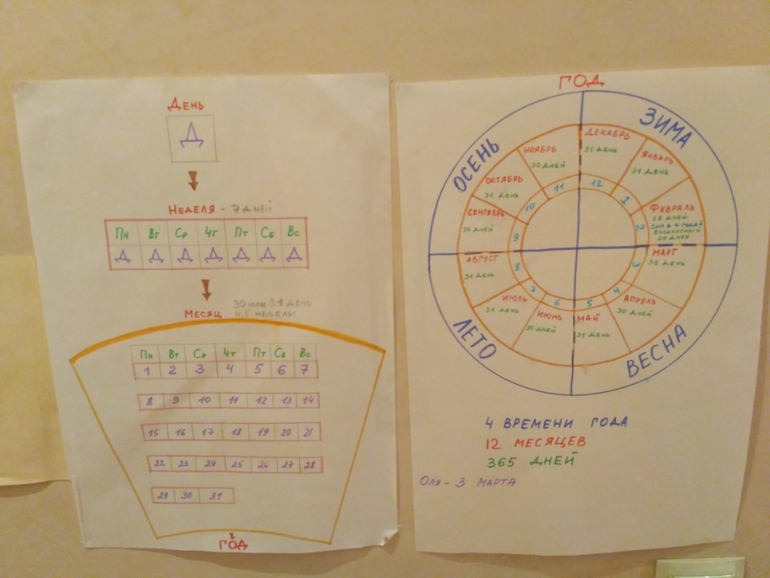 День
Д
Неделя - 7 дней
Пн Вт Ср Чт Пт Сб Вс
Д Д Д Д Д Д Д
Месяц
30 или 31 день
4,5 недели
Пн Вт Ср Чт Пт Сб Вс
1 2 3 4 5 6 7
8 9 10 11 12 13 14
15 16 17 18 19 20 21
22 23 24 25 26 27 28
29 30 31
в
год
ГОД
ЗИМА
ВЕСНА
ЛЕТО
ОСЕНЬ
ДЕКАБРЬ
31 день
12
ЯНВАРЬ
31 день
1
ФЕВРАЛЬ
28 дней
високосный
29 дней
2
МАРТ
31 день
3
АПРЕЛЬ
30 дней
4
МАЙ
31 день
5
ИЮНЬ
30 дней
6
ИЮЛЬ
31 день
7
АВГУСТ
31 день
8
СЕНТЯБРЬ
30 дней
9
ОКТЯБРЬ
31 день
10
НОЯБРЬ
30 дней
11
4 ВРЕМЕНИ ГОДА
12 МЕСЯЦЕВ
365 ДНЕЙ
Оля - 3 МАРТА